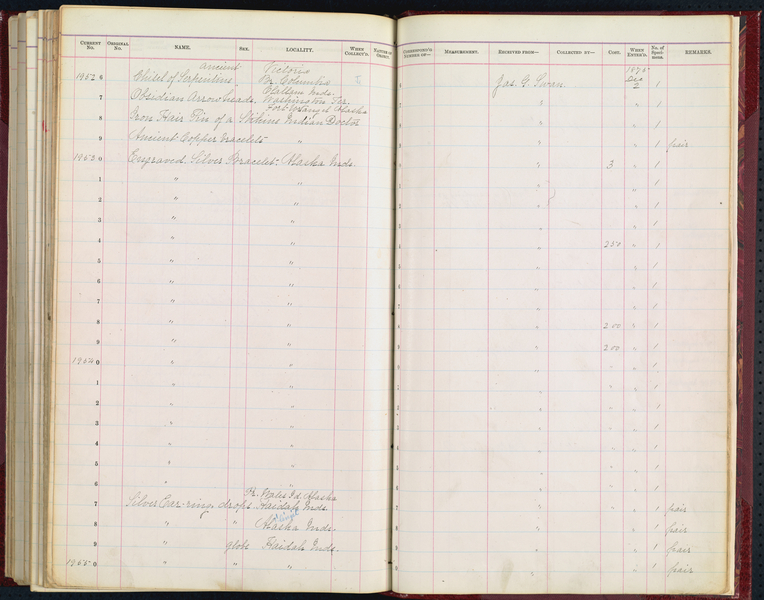 CURRENT No. ORIGINAL No. NAME. SEX. LOCALITY. WHEN COLLECT'D. NATURE OF OBJECT. CORRESPOND'G NUMBER OF— MEASUREMENT. RECEIVED FROM— COLLECTED BY— COST. WHEN ENTER'D. No. of Speci-mens. REMARKS.
ancient Victoria 1875
19526 Chisel of Serpentine Br. Columbia Jas. G. Swan Dec 2 1
Clallam Inds.
7 Obsidian Arrowheads, Washington Ter. " " 1
Fort Wrangel Alaska
8 Iron Hair Pin of a Stikine Indian Doctor " " 1
9 Ancient Copper bracelets " " " 1 pair
19530 Engraved Silver Bracelet. Alaska Inds. " 3 " 1
1 " " " " 1
2 " " " " 1
3 " " " " 1
4 " " " 2 50 " 1
5 " " " " 1
6 " " " " 1
7 " " " " 1
8 " " " 2 00 " 1
9 " " " 2 00 " 1
19540 " " " " " 1
1 " " " " " 1
2 " " " " " 1
3 " " " " " 1
4 " " " " " 1
5 " " " " " 1
6 " " " " " 1
Pr. Wales Id. Alaska
7 Silver Ear-rings, drops Haidah Inds " " " 1 pair
8 " " Alaska Inds. " " 1 pair
9 " globe Haidah Inds. " " 1 pair
19550 " " " " " 1 pair